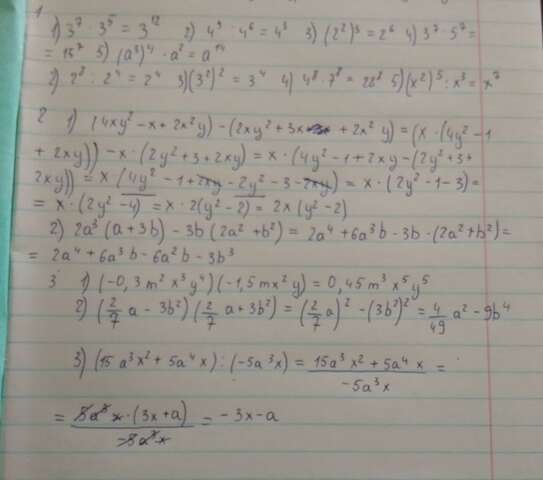 1
1) 3⁷ · 3⁵ = 3¹² 2) 4⁹ : 4⁶ = 4³ 3) (2²)³ = 2⁶ 4) 3⁷ · 5⁷ =
= 15⁷ 5) (a³)⁴ · a² = a¹⁴
2) 2⁸ : 2⁴ = 2⁴ 3) (3²)² = 3⁴ 4) 4⁸ · 7⁸ = 28⁸ 5) (x²)⁵ : x³ = x⁷
2 1) (4xy² - x + 2x²y) - (2xy² + 3x + 2x²y) = (x · (4y² - 1
+ 2xy)) - x · (2y² + 3 + 2xy) = x · (4y² - 1 + 2xy - (2y² + 3 +
2xy)) = x (4y² - 1 + 2xy - 2y² - 3 - 2xy) = x · (2y² - 1 - 3) =
= x · (2y² - 4) = x · 2(y² - 2) = 2x (y² - 2)
2) 2a³ (a + 3b) - 3b (2a² + b²) = 2a⁴ + 6a³b - 3b · (2a² + b²) =
= 2a⁴ + 6a³b - 6a²b - 3b³
3 1) (-0,3 m²x³y⁴) (-1,5 mx²y) = 0,45 m³x⁵y⁵
2) (2/7 a - 3b²) (2/7 a + 3b²) = (2/7 a)² - (3b²)² = 4/49 a² - 9b⁴
3) (15a³x² + 5a⁴x) : (-5a³x) = (15a³x² + 5a⁴x)/(-5a³x) =
= (5a³x · (3x + a))/(-5a³x) = -3x - a